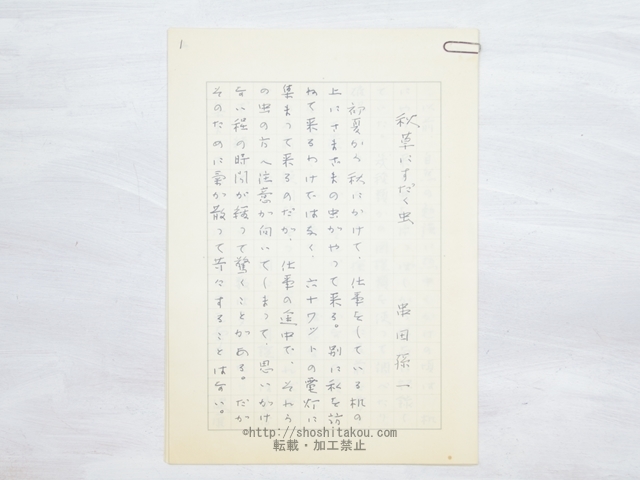 1
秋草にすだく虫
串田孫一
初夏から秋にかけて、仕事をしている机の
上にさまざまの虫がやって来る。別に私を訪
ねて来るわけではなく、六十ワットの電灯に
集まって来るのだが、仕事の途中で、それら
の虫の方へ注意が向いてしまって、思いがけ
ない程の時間が経って驚くことがある。だが
そのために気が散って苦々することはない。
©http://shoshitakou.com
転載・加工禁止